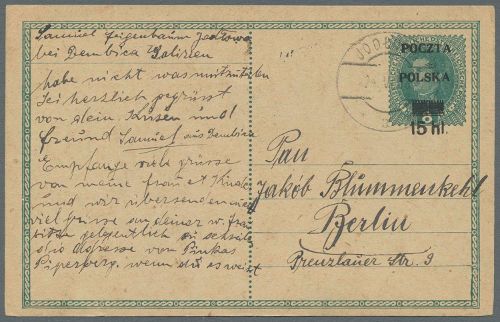 Samuel Feigenbaum Jodłowa
bei Dembica Galizien
habe nicht was mitzuteilen
Sei herzlich gegrüsst
von dein
und
freund Samuel aus Dembica
Empfange viele grüsse
von meine frau et Kinder
und wir übersenden
viel grüsse an deiner w. frau
bitten gelegentlich zu
die adresse von Pinkas
wenn du es weist
JODŁ
POCZTA
POLSKA
15 hl.
Pan
Jakób Blummenkehl
Berlin
Prenzlauer Str. 9